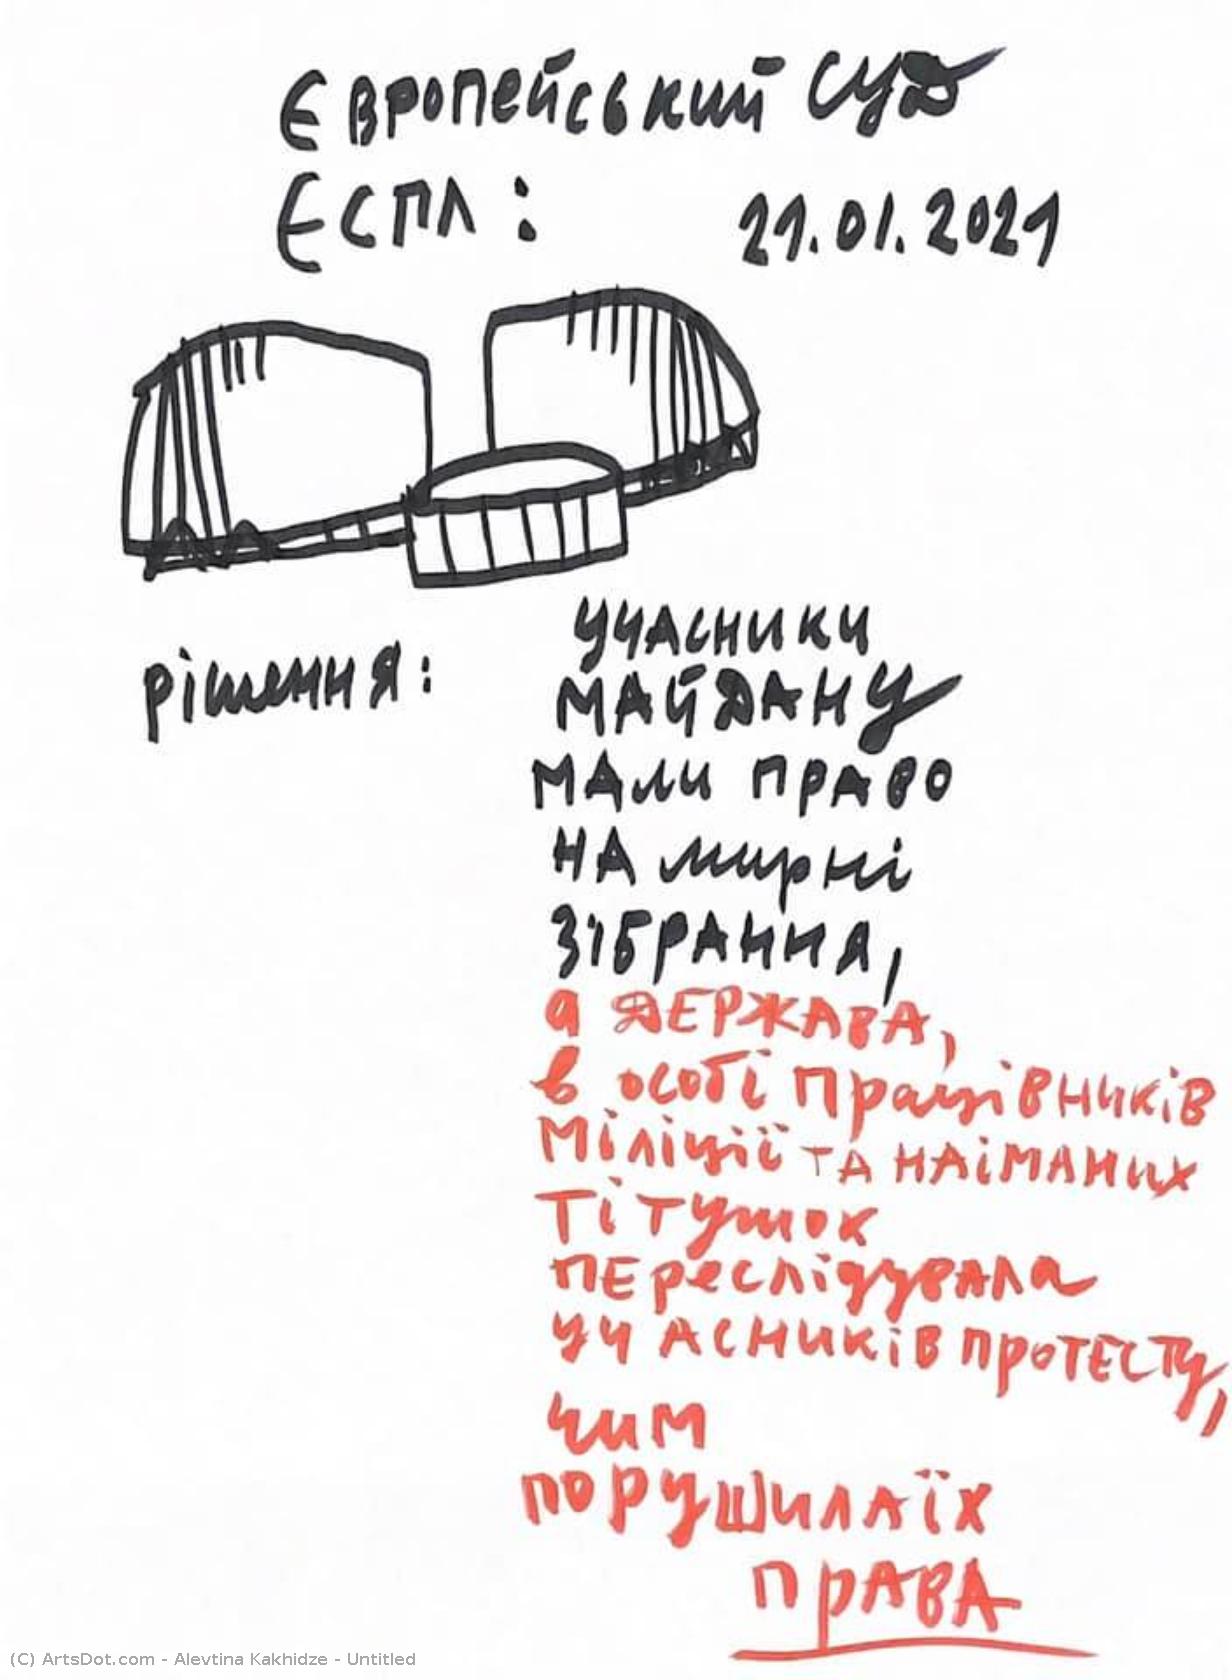 Європейський суд
ЄСПЛ: 21.01.2021
рішення:
учасники
Майдану
мали право
на мирні
зібрання,
а держава,
в особі працівників
міліції та наіманих
тітушок
переслідувала
учасників протесту,
чим
порушила їх
права
(C) ArtsDot.com - Alevtina Kakhidze - Untitled